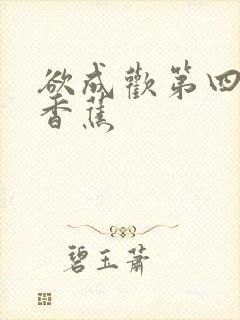 欲成歡第四
香蕉
碧玉蕭